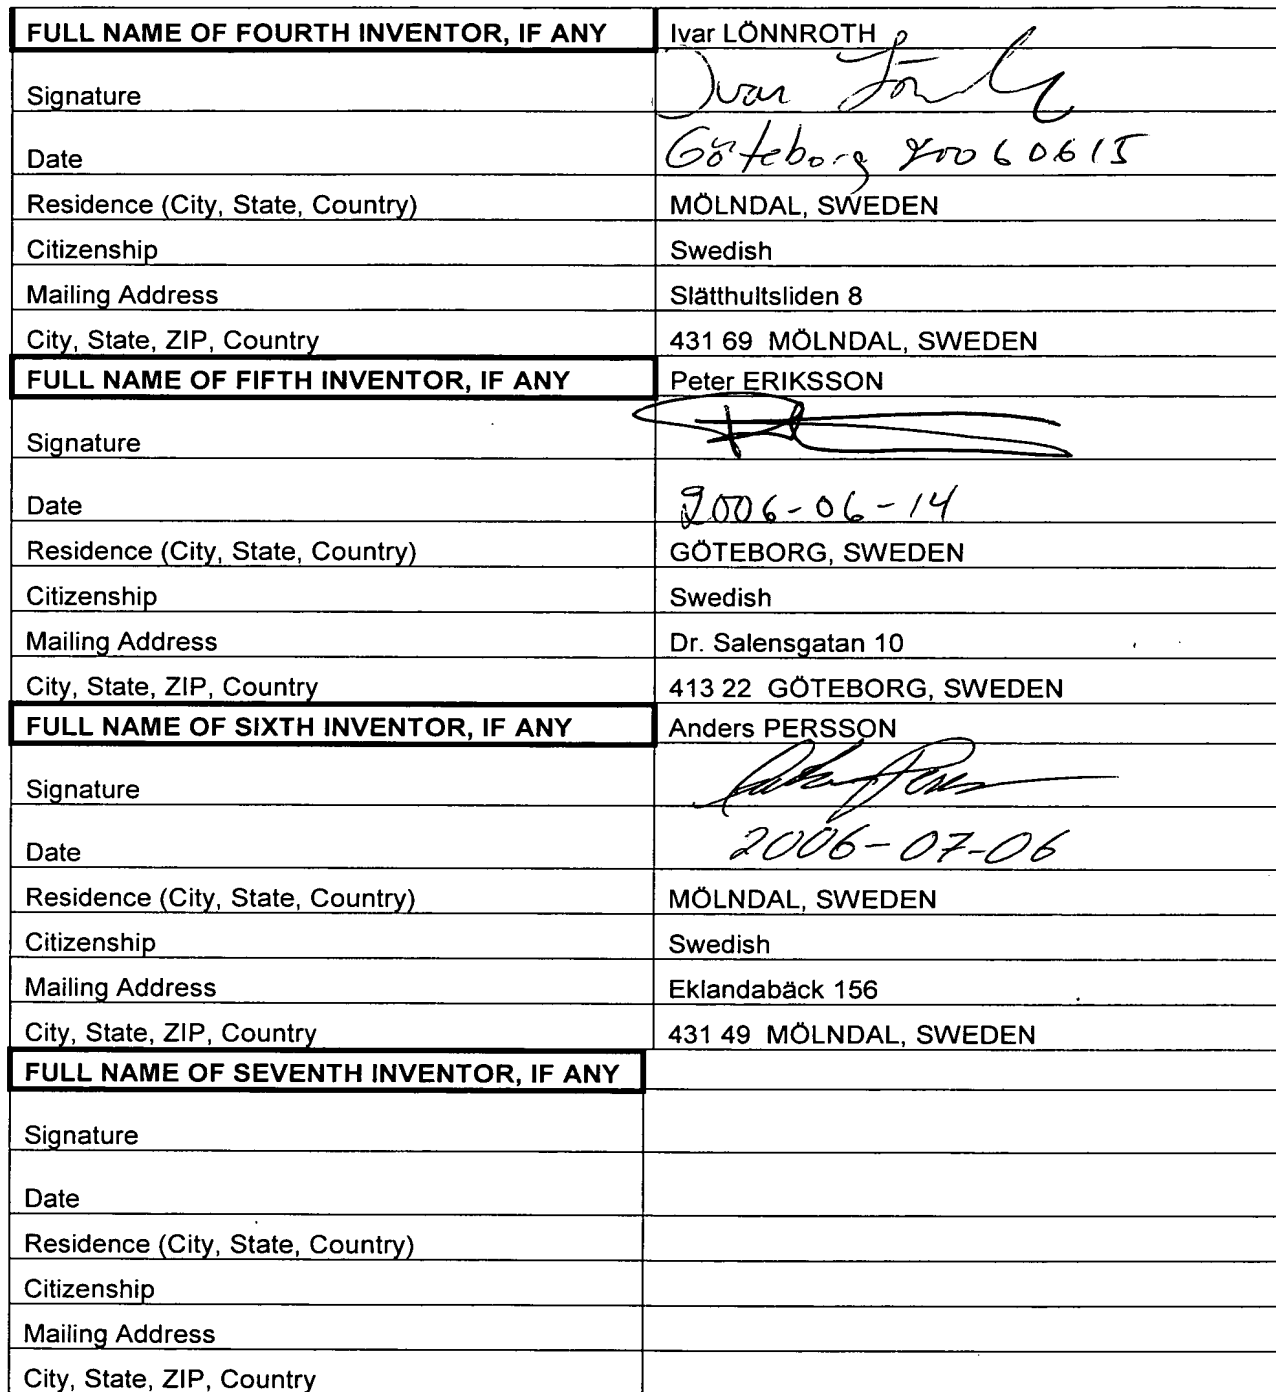 FULL NAME OF FOURTH INVENTOR, IF ANY Ivar LÖNNROTH
Signature Ivar
Date Göteborg 20060615
Residence (City, State, Country) MÖLNDAL, SWEDEN
Citizenship Swedish
Mailing Address Slätthultsliden 8
City, State, ZIP, Country 431 69 MÖLNDAL, SWEDEN
FULL NAME OF FIFTH INVENTOR, IF ANY Peter ERIKSSON
Signature
Date 2006-06-14
Residence (City, State, Country) GÖTEBORG, SWEDEN
Citizenship Swedish
Mailing Address Dr. Salensgatan 10
City, State, ZIP, Country 413 22 GÖTEBORG, SWEDEN
FULL NAME OF SIXTH INVENTOR, IF ANY Anders PERSSON
Signature
Date 2006-07-06
Residence (City, State, Country) MÖLNDAL, SWEDEN
Citizenship Swedish
Mailing Address Eklandabäck 156
City, State, ZIP, Country 431 49 MÖLNDAL, SWEDEN
FULL NAME OF SEVENTH INVENTOR, IF ANY
Signature
Date
Residence (City, State, Country)
Citizenship
Mailing Address
City, State, ZIP, Country